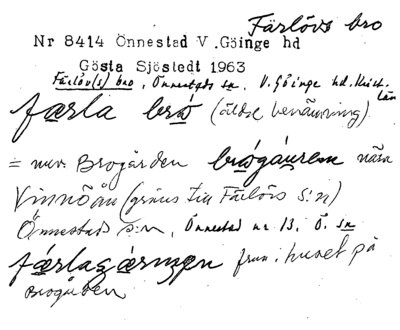 Färlövs bro
Nr 8414 Önnestad V.Göinge hd
Gösta Sjöstedt 1963
Färlöv(s) bro, Önnestads sn, V. Göinge hd. Krist.
län
færla bro (äldre benämning)
= nuv. Brogården nära
Vinnöån (gräns till Färlövs s:n)
Önnestads s:n, Önnestad nr 13, Ö. sn
frun i huset på
Brogården